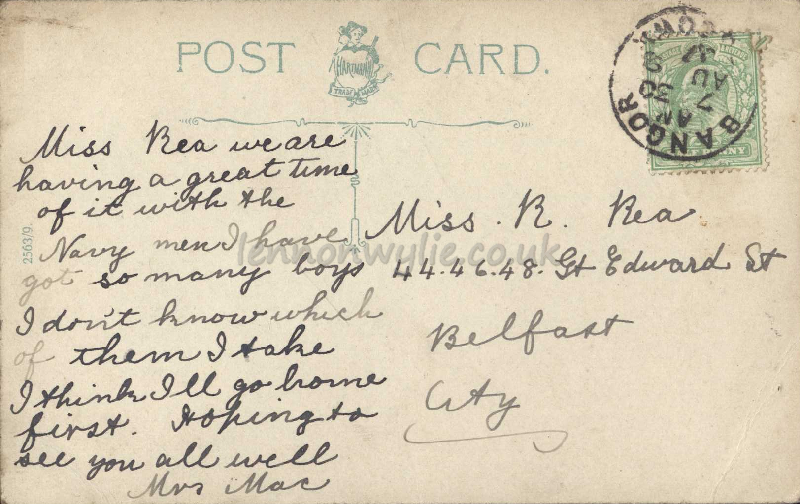 POST CARD.
HARTMANN
TRADE MARK
BANGOR
CO. DOWN
AU 7
Miss Rea we are
having a great time
of it with the
Navy men I have
got so many boys
I don't know which
of them I take
I think I'll go home
first. Hoping to
see you all well
Mrs Mac
Miss. R. Rea
44.46.48. Gt Edward St
Belfast
City
2563/9.
lennonwylie.co.uk